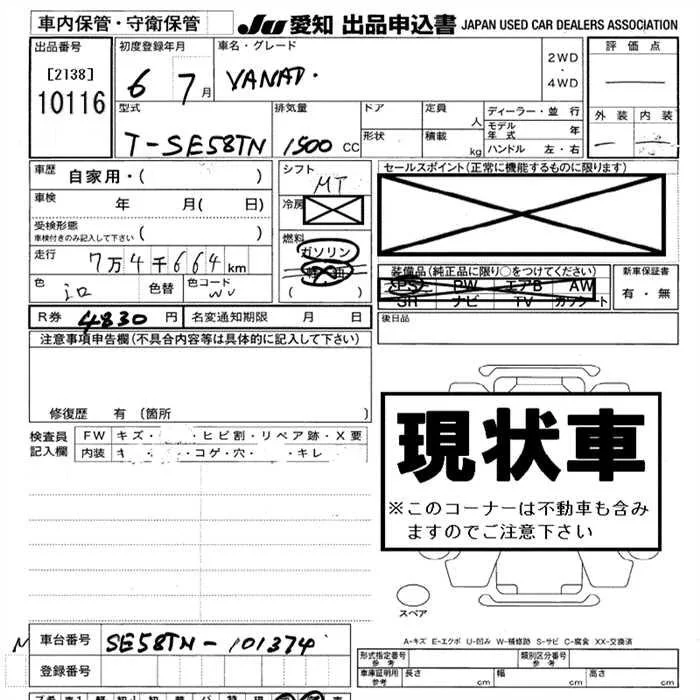 車内保管・守衛保管
JU 愛知 出品申込書 JAPAN USED CAR DEALERS ASSOCIATION
出品番号
[2138]
10116
初度登録年月
6 7月
車名・グレード
VANAD.
2WD
・
4WD
評価点
外装 内装
型式
T-SE58TN
排気量
1500 cc
ドア
形状
定員 人
積載 kg
ディーラー・並行
モデル年式 年
ハンドル 左・右
車歴 自家用・( )
車検 年 月( 日)
受検形態
車検付きのみ記入して下さい ( )
走行 7万4千664km
色 色替 色コード
シフト
MT
冷房
燃料
ガソリン
( )
セールスポイント(正常に機能するものに限ります)
装備品(純正品に限り○をつけてください)
PS PW エアB AW
SR ナビ TV カワシート
新車保証書
有・無
R券 4830 円 名変通知期限 月 日
後日品
注意事項申告欄(不具合内容等は具体的に記入して下さい)
修復歴 有(箇所 )
検査員
記入欄
FW キズ・ ヒビ割・リペア跡・X要
内装 キ コゲ・穴・ キレ
現状車
※このコーナーは不動車も含み
ますのでご注意下さい
スペア
A-キズ E-エクボ U-凹み W-補修跡 S-サビ C-腐食 XX-交換済
車台番号 SE58TN-101374
登録番号
形式指定番号
参考
類別区分番号
参考
車庫証明用
参考
長さ cm 幅 cm 高さ cm